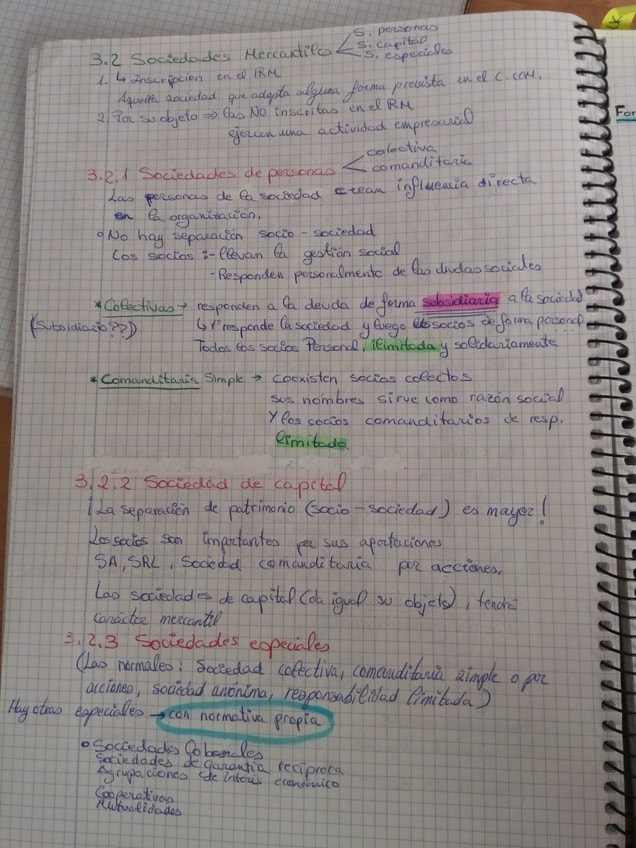 3.2 Sociedades Mercantiles
S. personas
S. capital
S. especiales
1. ↳ Inscripción en el RM
Aquella sociedad que adopta alguna forma prevista en el C.COM.
2. Por su objeto ⇒ las NO inscritas en el RM
ejercen una actividad empresarial
3.2.1 Sociedades de personas
colectiva
comanditaria
Las personas de la sociedad crean influencia directa
en la organización.
No hay separación socio-sociedad
Los socios: - llevan la gestión social
- Responden personalmente de las deudas sociales
* Colectivas → responden a la deuda de forma subsidiaria a la sociedad
(Subsidiario??)
↳ 1º responde la sociedad y luego los socios de forma personal
Todos los socios Personal, ilimitada y solidariamente
* Comanditaria Simple → coexisten socios colectos
sus nombres sirve como razón social
Y los socios comanditarios de resp.
limitada
3.2.2 Sociedad de capital
¡La separación de patrimonio (socio-sociedad) es mayor!
Los socios son importantes por sus aportaciones
SA, SRL, Sociedad comanditaria por acciones.
Las sociedades de capital (da igual su objeto), tendrá
carácter mercantil
3.2.3 Sociedades especiales
(Las normales: Sociedad colectiva, comanditaria simple o por
acciones, sociedad anónima, responsabilidad limitada)
Hay otras especiales → con normativa propia
Sociedades laborales
Sociedades de garantía recíproca
Agrupaciones de interés económico
Cooperativas
Mutualidades
For